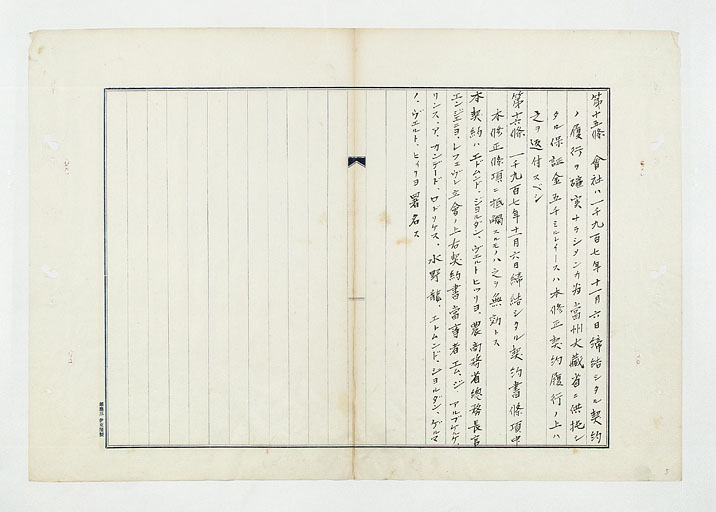 第十五條 會社ハ一千九百七年十一月六日締結シタル契約
ノ履行ヲ確実ナラシメンカ為當州大藏省ニ供托シ
タル保証金五千ミルレイースハ本修正契約履行ノ上ハ
之ヲ返付スベシ
第十六條 一千九百七年十一月六日締結シタル契約書條項中
本修正條項ニ抵觸スルモノハ之ヲ無効トス
本契約ハエドムンド、ジョルダン、ヴエルト、ヒツリヨ、農商務省總務長官
エンジエニヨ、レフエヴレ立會ノ上右契約書當事者エム、ジ アルブケルケ、
リンス、ア、カンデード、ロドリゲス、水野龍、エトムンド、ジョルダン、ゲルマ
ノ、ヴエルト、ヒイリヨ署名ス